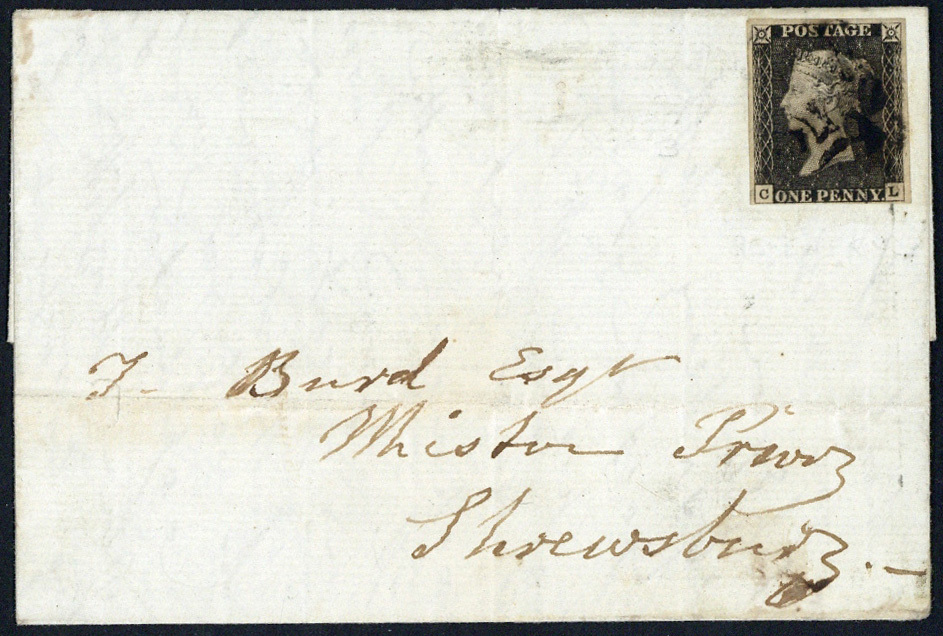 POSTAGE
C ONE PENNY. L
T. Burd Esqr
Whiston Priory
Shrewsbury.